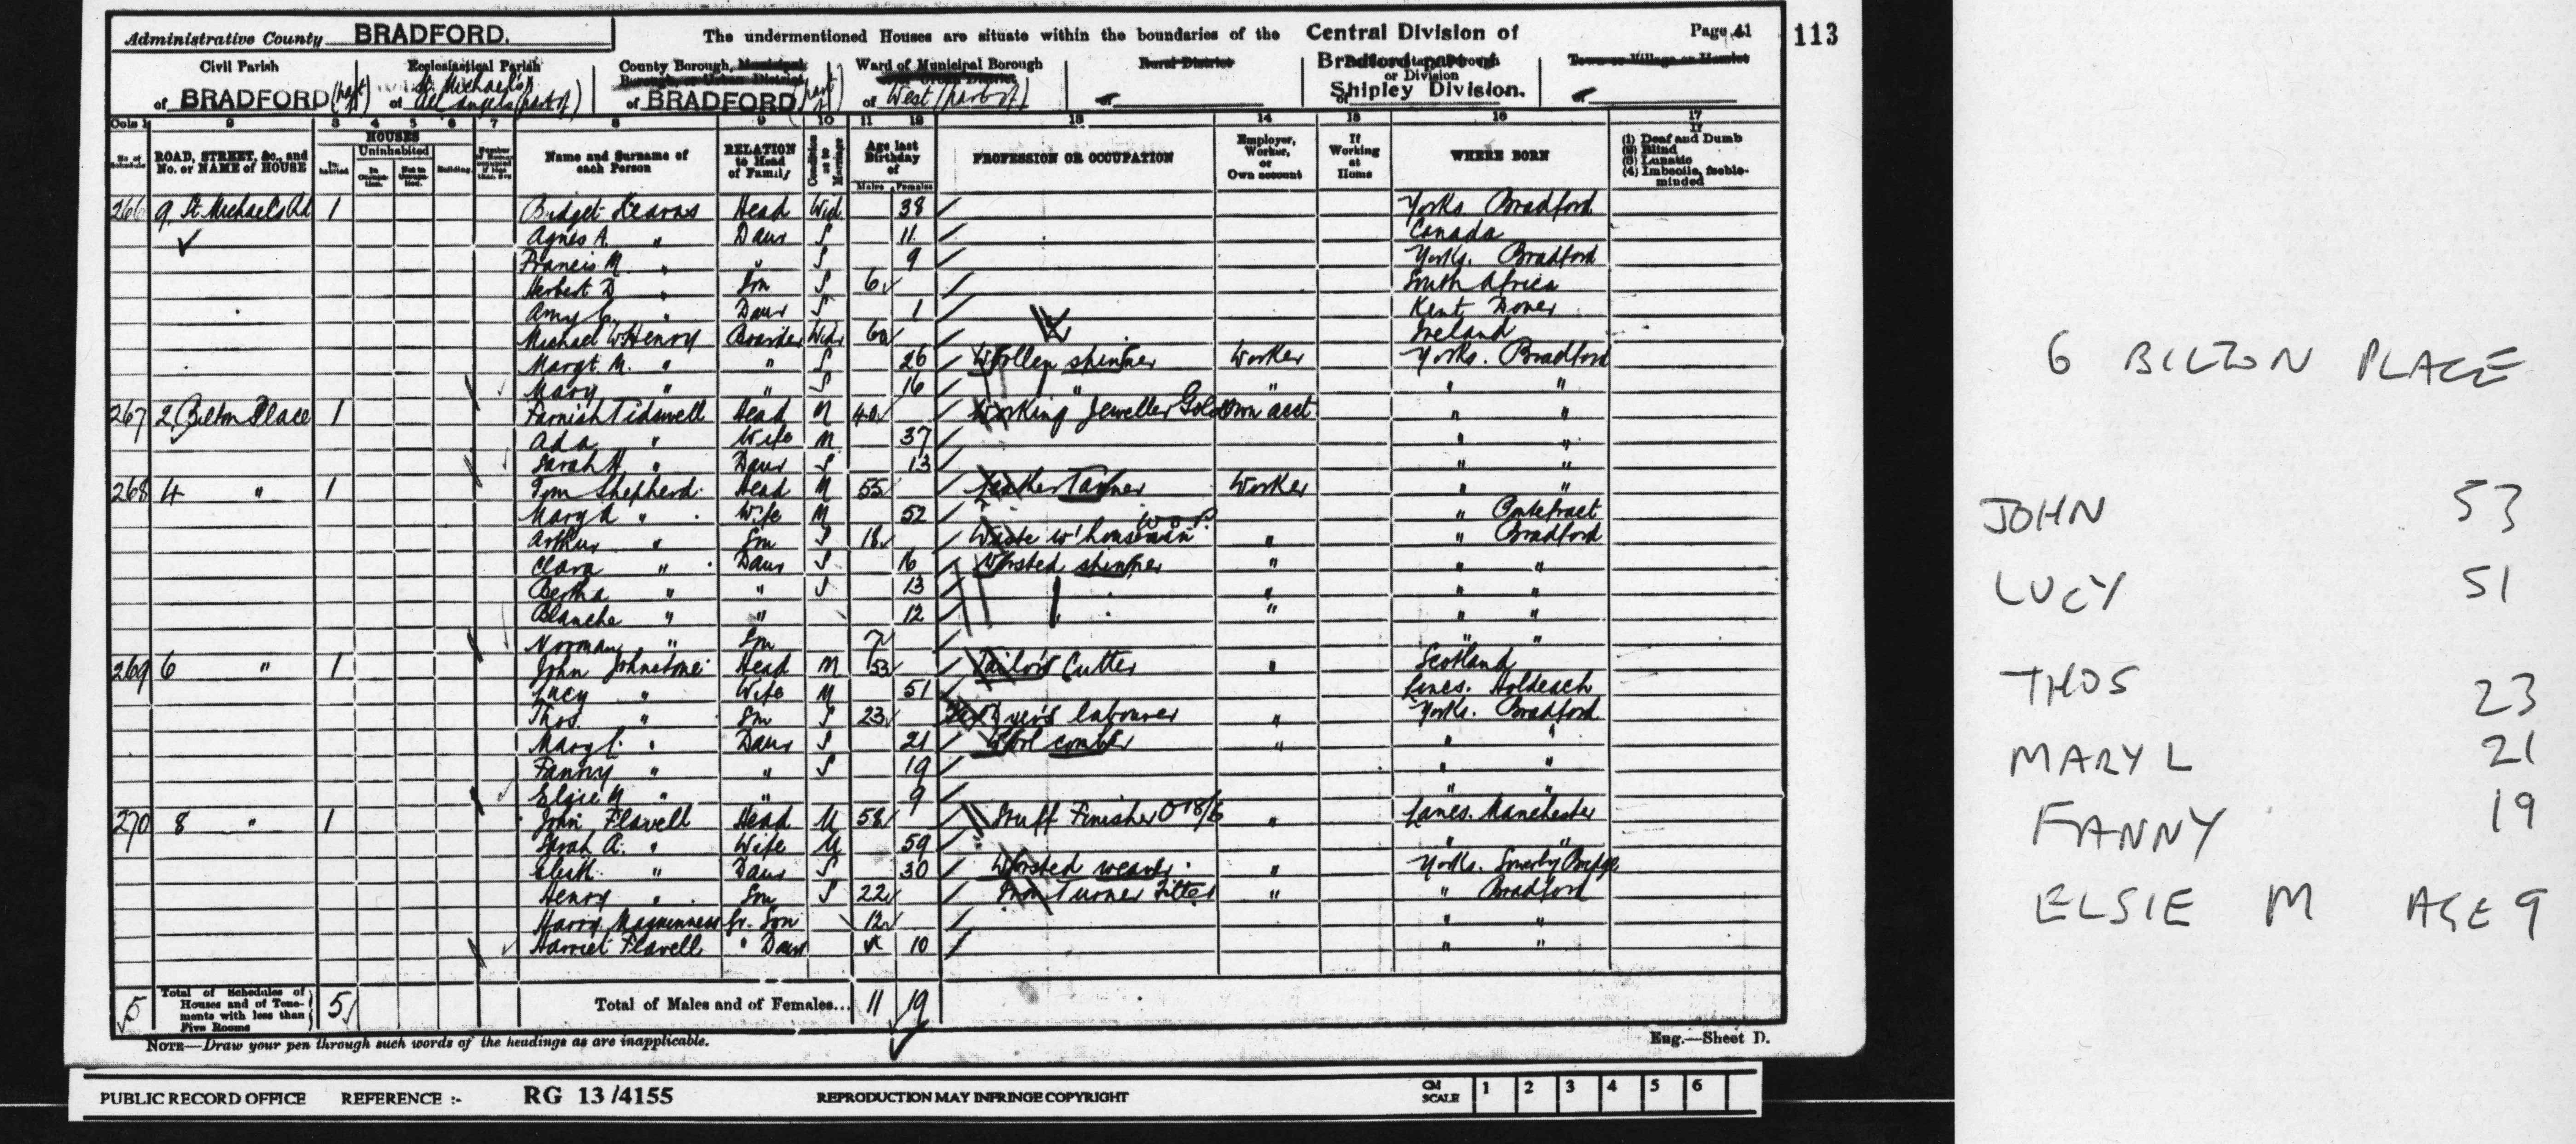 Administrative County BRADFORD. The undermentioned Houses are situate within the boundaries of the Central Division of Page 41 113
Civil Parish Ecclesiastical Parish County Borough, Municipal Ward of Municipal Borough Rural District Town or Village or Hamlet
St. Michael's & Borough, or Urban District or Division
of BRADFORD (part of) of All Angels (part of) of BRADFORD (part of) of West (part of) of Shipley Division. of
Cols 1 2 3 4 5 6 7 8 9 10 11 12 13 14 15 16 17
No. of Schedule ROAD, STREET, &c., and No. or NAME of HOUSE HOUSES Inhabited Uninhabited In Occupation. Not in Occupation. Building. Name and Surname of each Person RELATION to Head of Family Condition as to Marriage Age last Birthday of Males Females PROFESSION OR OCCUPATION Employer, Worker, or Own account If Working at Home WHERE BORN If (1) Deaf and Dumb (2) Blind (3) Lunatic (4) Imbecile, feeble-minded
266 9, St. Michael's Rd 1 Bridget Kearns Head Wid. 38 Yorks. Bradford
Agnes A. " Daur S 11 Canada
Francis M. " " S 9 Yorks. Bradford
Herbert D " Son S 6 South Africa
Amy C. " Daur S 1 Kent Dover
Michael W Henry Boarder Widr 60 Ireland
Margt. M. " " S 26 Woollen spinner Worker Yorks. Bradford
Mary " " S 16 " " " "
267 2, Bilton Place 1 Furnish Tidswell Head M 40 Working Jeweller Gold Own acct " "
Ada " Wife M 37 " "
Sarah H. " Daur S 13 " "
268 4 " 1 Tom Shepherd Head M 55 Leather Tanner Worker " "
Mary A " Wife M 52 " Pontefract
Arthur " Son S 18 Waste w'houseman " " Bradford
Clara " Daur S 16 Worsted spinner " " "
Bertha " " S 13 " " "
Blanche " " 12 " " "
Norman " Son 7 " "
269 6 " 1 John Johnstone Head M 53 Tailor's Cutter " Scotland
Lucy " Wife M 51 Lincs. Holbeach
Thos. " Son S 23 Dyer's labourer " Yorks. Bradford
Mary L. " Daur S 21 Wool comber " " "
Fanny " " S 19 " "
Elsie M " " 9 " "
270 8 " 1 John Flavell Head M 58 Stuff Finisher " Lancs. Manchester
Sarah A. " Wife M 59 " "
Eliz'th " Daur S 30 Worsted weaver " Yorks. Sowerby Bridge
Henry " Son S 22 Iron Turner Fitter " " Bradford
Harry Maguinness Gr. Son 12 " "
Harriet Flavell " Daur 10 " "
5 Total of Schedules of Houses and of Tenements with less than Five Rooms 5 Total of Males and of Females... 11 19
NOTE—Draw your pen through such words of the headings as are inapplicable. Eng.—Sheet D.
PUBLIC RECORD OFFICE REFERENCE :- RG 13/4155 REPRODUCTION MAY INFRINGE COPYRIGHT CM SCALE 1 2 3 4 5 6
6 BILTON PLACE
JOHN 53
LUCY 51
THOS 23
MARY L 21
FANNY 19
ELSIE M AGE 9